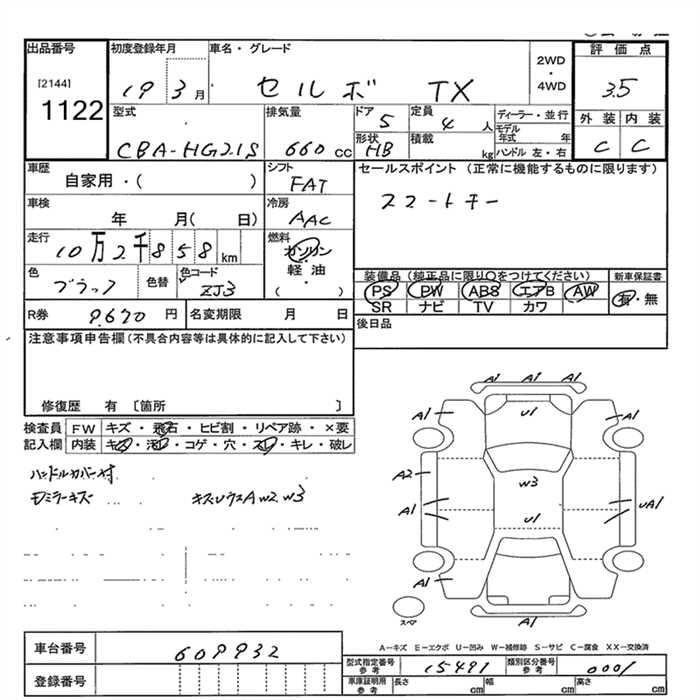 出品番号 初度登録年月 車名・グレード 2WD・4WD 評価点
[2144] 1122 19 3月 セルボ TX 3.5
型式 排気量 ドア 定員 ディーラー・並行 外装 内装
CBA-HG21S 660 cc 5 4 人 モデル年式 年 C C
形状 HB 積載 kg ハンドル 左・右
車歴 シフト セールスポイント(正常に機能するものに限ります)
自家用・( ) FAT スマートキー
車検 冷房
年 月( 日) AAC
走行 燃料
10万2千858km ガソリン・軽油・( )
色 色替 色コード 装備品(純正品に限り○をつけてください) 新車保証書
ブラック ZJ3 PS PW ABS エアB AW 有・無
SR ナビ TV カワ
R券 9.670 円 名変期限 月 日 後日品
注意事項申告欄(不具合内容等は具体的に記入して下さい)
修復歴 有 [箇所 ]
検査員 FW キズ・飛石・ヒビ割・リペア跡・×要
記入欄 内装 キズ・汚レ・コゲ・穴・スレ・キレ・破レ
ハンドルカバー付
モニミラーキズ キズUウスA W2.W3
A1 A1 A1
A1 U1 A1
A2 W3
A1 U1 UA1
A1
スペア A1
A—キズ E—エクボ U—凹み W—補修跡 S—サビ C—腐食 XX—交換済
車台番号 609932
型式指定番号 参考 15491 類別区分番号 参考 0001
登録番号 車庫証明用 参考 長さ cm 幅 cm 高さ cm